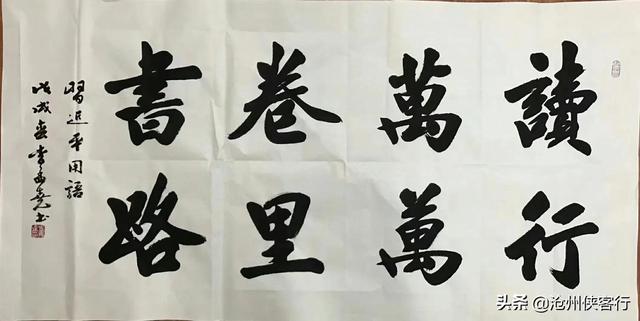 讀萬卷書
行萬里路
習近平用語
戊戌
头条 @沧州侠客行